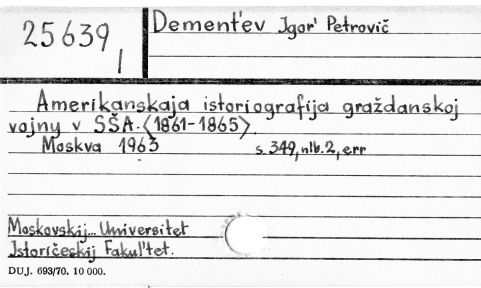 25639
1
Dement'ev Jgor' Petrovič
Amerikanskaja istoriografija graždanskoj
vojny v SŠA. <1861-1865>.
Moskva 1963 s. 349, nlb. 2, err
Moskovskij Universitet
Jstoričeskij Fakul'tet.
DUJ. 693/70. 10 000.